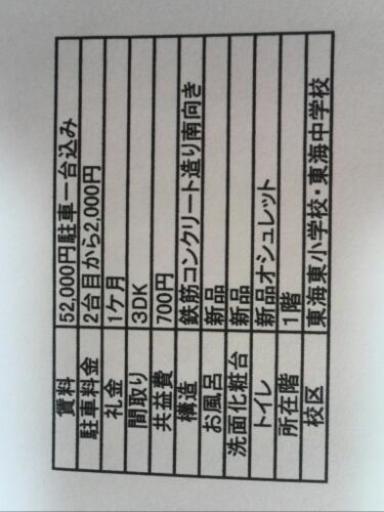 賃料 52,000円駐車一台込み
駐車料金 2台目から2,000円
礼金 1ケ月
間取り 3DK
共益費 700円
構造 鉄筋コンクリート造り南向き
お風呂 新品
洗面化粧台 新品
トイレ 新品オシュレット
所在階 1階
校区 東海東小学校・東海中学校